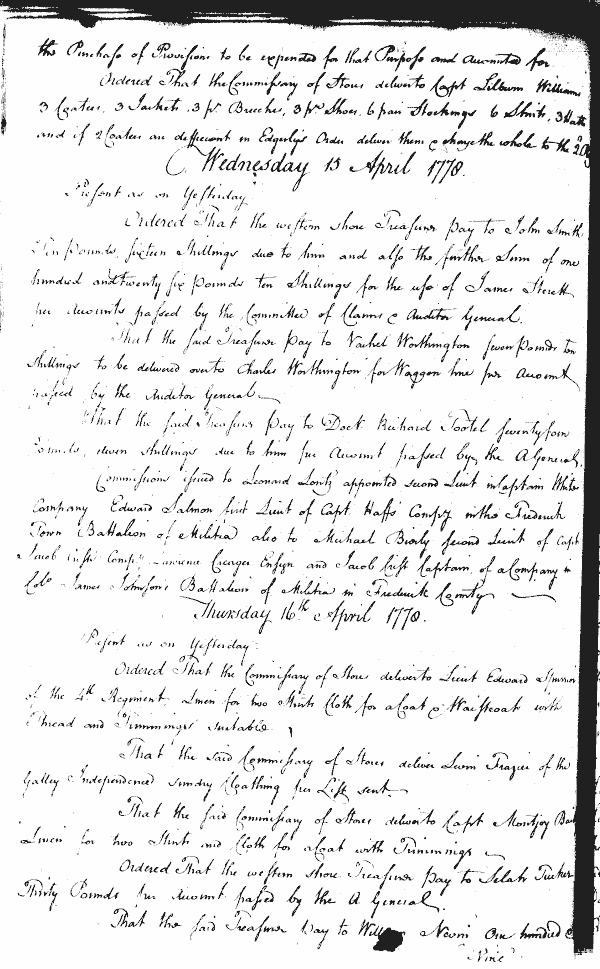 the Purchase of Provisions to be expended for that Purpose and accounted for
Ordered That the Commissary of Stores deliver to Capt Lilburn Williams
3 Coatees, 3 Jackets, 3 pr Breeches, 3 pr Shoes, 6 pair Stockings 6 Shirts, 3 Hats
and if 2 Coatees are deficient in Edgerly's Order deliver them & charge the whole to the
Wednesday 15 April 1778.
Present as on Yesterday
Ordered That the western shore Treasurer pay to John Smith
Ten pounds, sixteen Shillings due to him and also the further Sum of one
hundred and twenty six pounds ten Shillings for the use of James Sterett
per Accounts passed by the Committee of Claims & Auditor General.
That the said Treasurer pay to Vachel Worthington seven pounds ten
Shillings to be delivered over to Charles Worthington for Waggon hire per Account
passed by the Auditor General
That the said Treasurer pay to Doct Richard Tootel seventy four
Pounds, seven shillings due to him per Account passed by the A General.
Commissions issued to Leonard Lantz appointed second Lieut in Captain
Company Edward Salmon first Lieut of Capt Haffs Compy in the Frederick
Town Battalion of Militia also to Michael Byerly second Lieut of Capt
Jacob Compy Lawrence Creager Ensign and Jacob Captain of a Company in
Colo James Johnson's Battalion of Militia in Frederick County
Thursday 16th April 1778.
Present as on Yesterday
Ordered That the Commissary of Stores deliver to Lieut Edward Spurrier
of the 4th Regiment, Linen for two Shirts Cloth for a Coat & Waistcoat with
Thread and Trimmings suitable
That the said Commissary of Stores deliver Levin Frazier of the
Galley Independence sundry Cloathing per List sent
That the said Commissary of Stores deliver to Capt Montjoy
Linen for two Shirts and Cloth for a Coat with Trimmings
Ordered That the western shore Treasurer pay to Selah Tucker
Thirty Pounds per Account passed by the A General.
That the said Treasurer pay to Nevin One hundred &
Nine